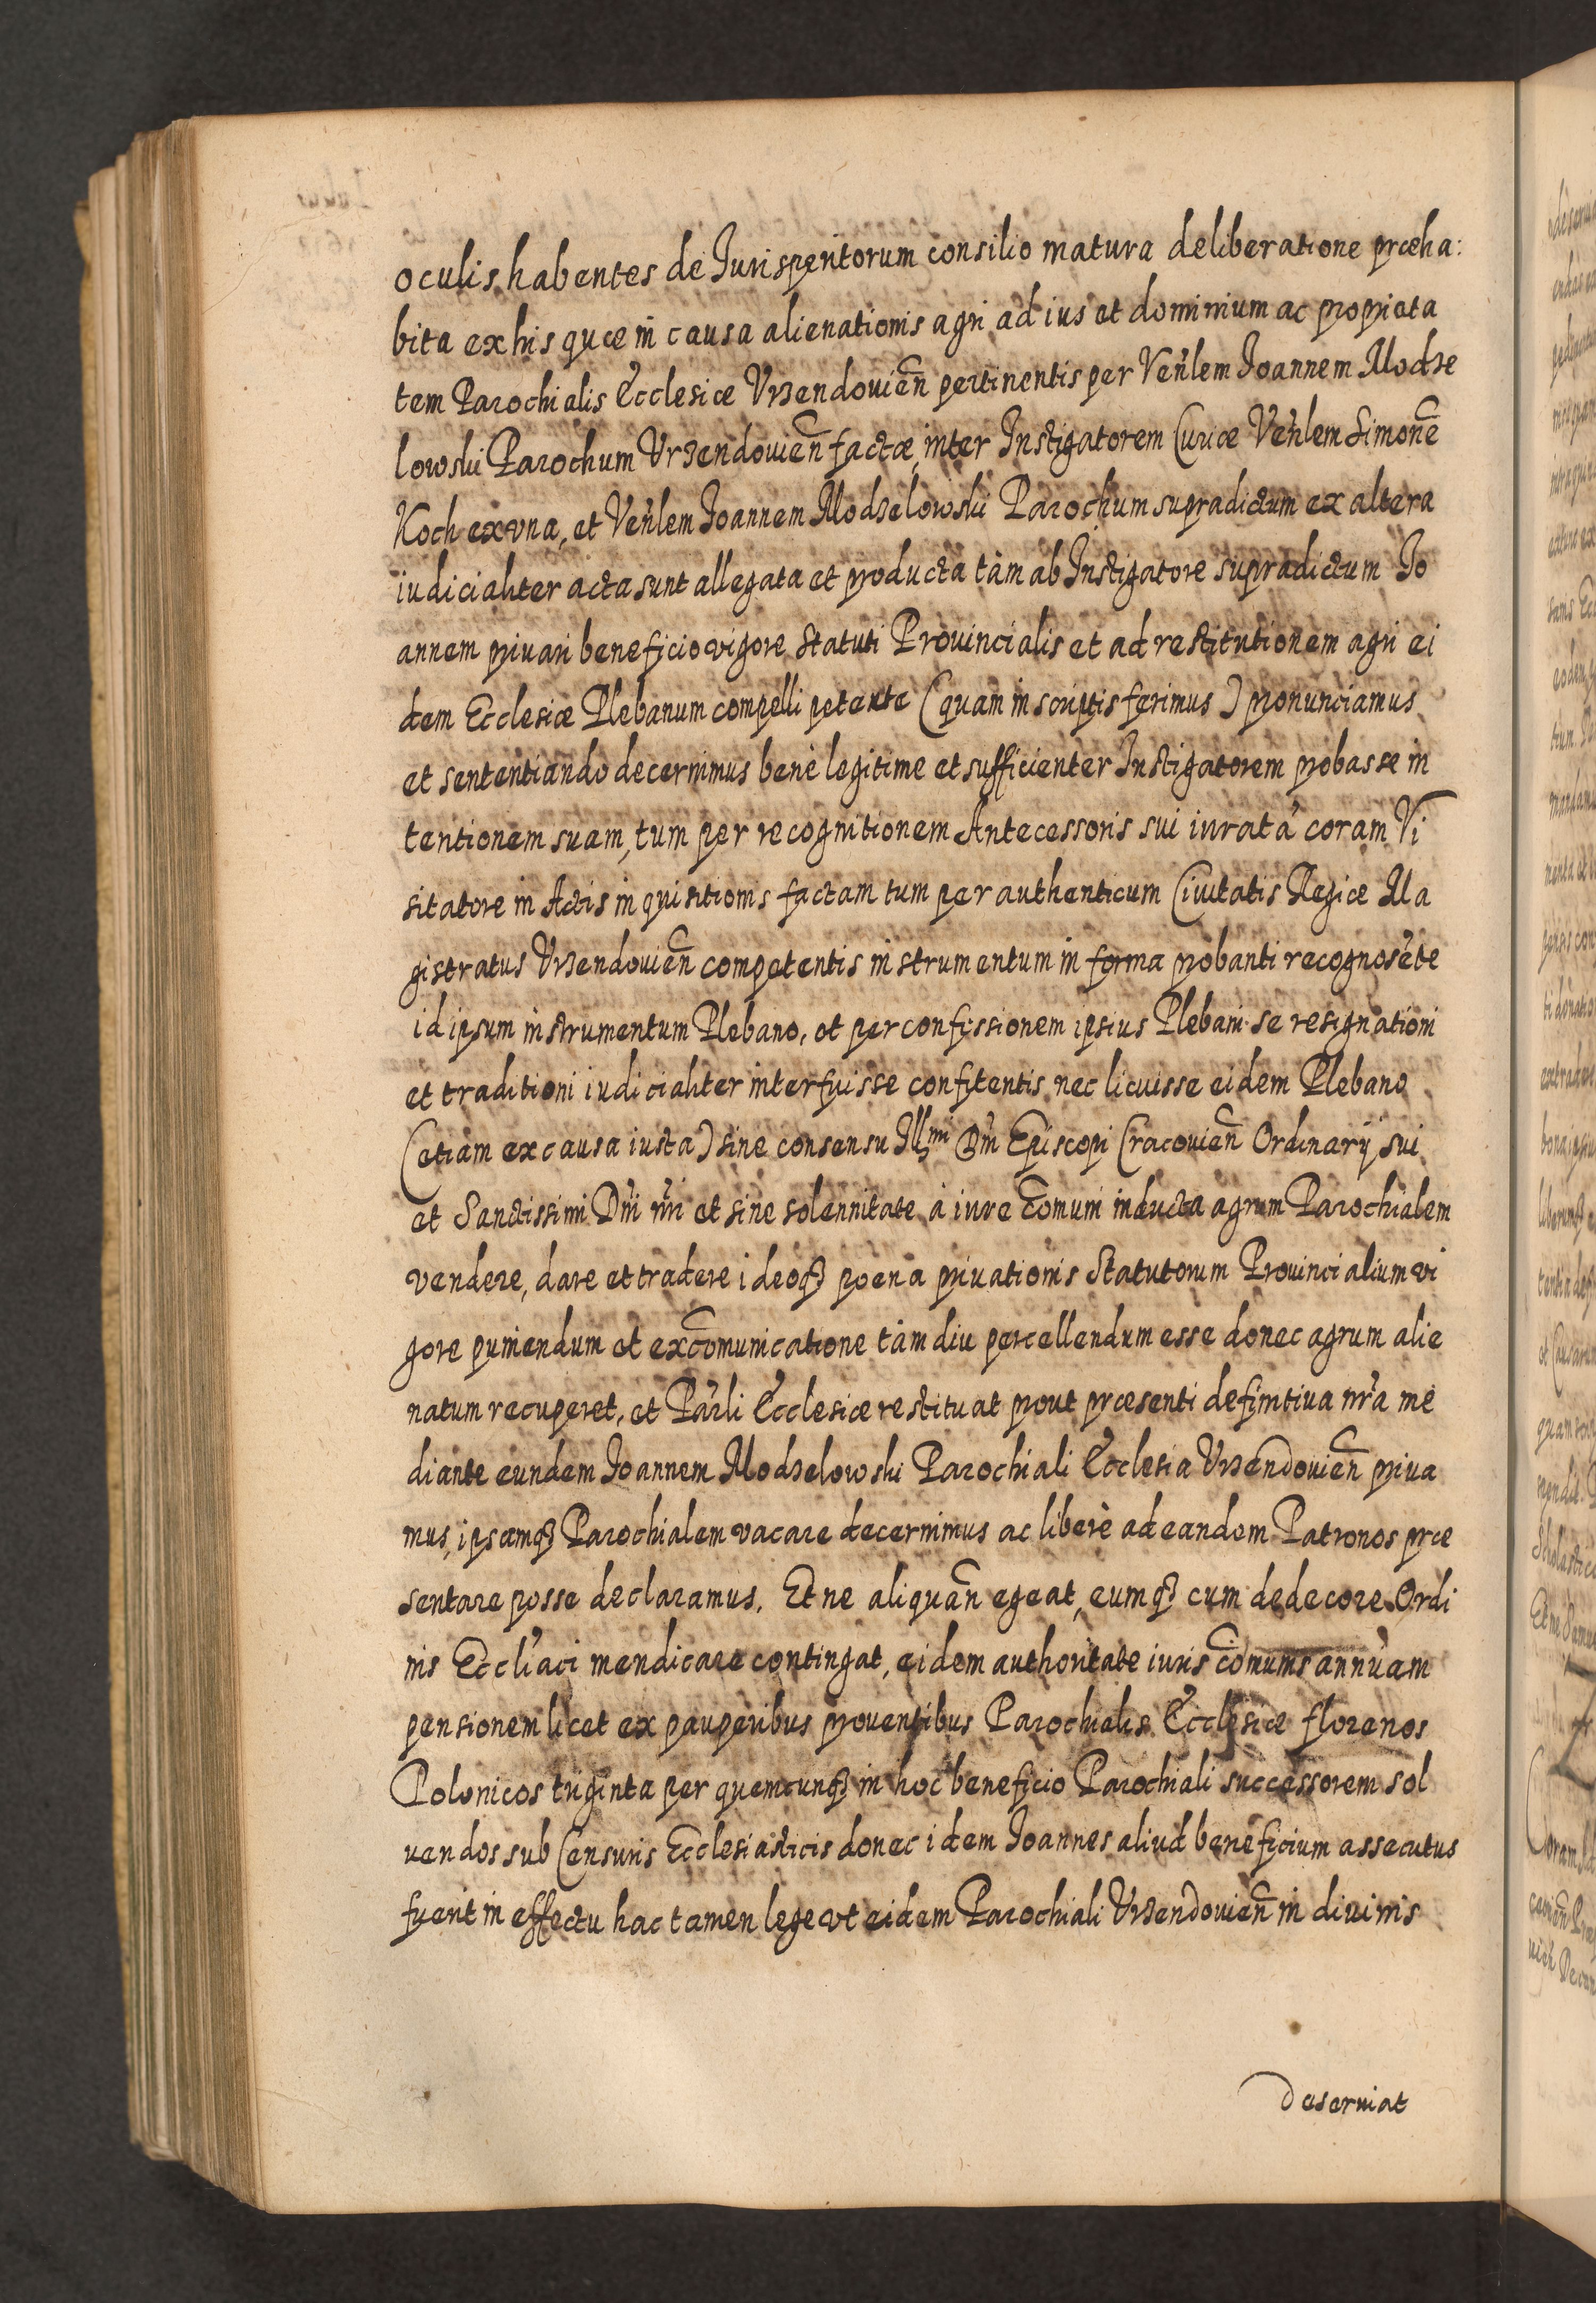 oculis habentes de Iurisperitorum consilio matura deliberatione præha:
bita ex his quæ in causa alienationis agri ad ius et dominium ac proprieta
tem Parochialis Ecclesiæ Vrzendouien̄ pertinentis per Ven̄lem Ioannem Modze
lowski Parochum Vrzendouien̄ factæ, inter Instigatorem Curiæ Ven̄lem Simonē
Koch ex vna, et Ven̄lem Ioannem Modzelowski Parochum supradictum ex altera
iudicialiter acta sunt allegata et producta tàm ab Instigatore supradictum Io
annem priuari beneficio vigore Statuti Prouincialis et ad restitutionem agri ei
dem Ecclesiæ Plebanum compelli petente (quam in scriptis ferimus) pronunciamus
et sententiando decernimus benè legitime et sufficienter Instigatorem probasse in
tentionem suam, tum per recognitionem Antecessoris sui iuratā coram Vi
sitatore in Actis inquisitionis factam tum per authenticum Ciuitatis Regiæ Ma
gistratus Vrzendouien̄ competentis instrumentum in forma probanti recognoscēte
id ipsum instrumentum Plebano, et per confessionem ipsius Plebani se resignationi
et traditioni iudicialiter interfuisse confitentis nec licuisse eidem Plebano
(etiam ex causa iusta) sine consensu Illmi Dn̄i Episcopi Cracouien̄ Ordinarij sui
et Sanctissimi Dn̄i nr̄i et sine solennitate à iure com̄uni inducta agrum Parochialem
vendere, dare et tradere ideoq3 poena priuationis Statutorum Prouincialium vi
gore puniendum et excom̄unicatione tàm diu percellendum esse donec agrum alie
natum recuperet, et Par̄li Ecclesiæ restituat prout præsenti definitiua nr̄a me
diante eundem Ioannem Modzelowski Parochiali Ecclesia Vrzendouien̄ priua
mus, ipsamq3 Parochialem vacare decernimus ac liberè ad eandem Patronos præ
sentare posse declaramus. Et ne aliquan̄ egeat, eumq3 cum dedecore Ordi
nis Eccl̄iaci mendicare contingat, eidem authoritate iuris com̄unis annuam
pensionem licet ex pauperibus prouentibus Parochialis Ecclesiæ florenos
Polonicos triginta per quemcunq3 in hoc beneficio Parochiali successorem sol
uendos sub Censuris Ecclesiasticis donec idem Ioannes aliud beneficium assecutus
fuerit in effectu hac tamen lege vt eidem Parochiali Vrzendouien̄ in diuinis
deseruiat